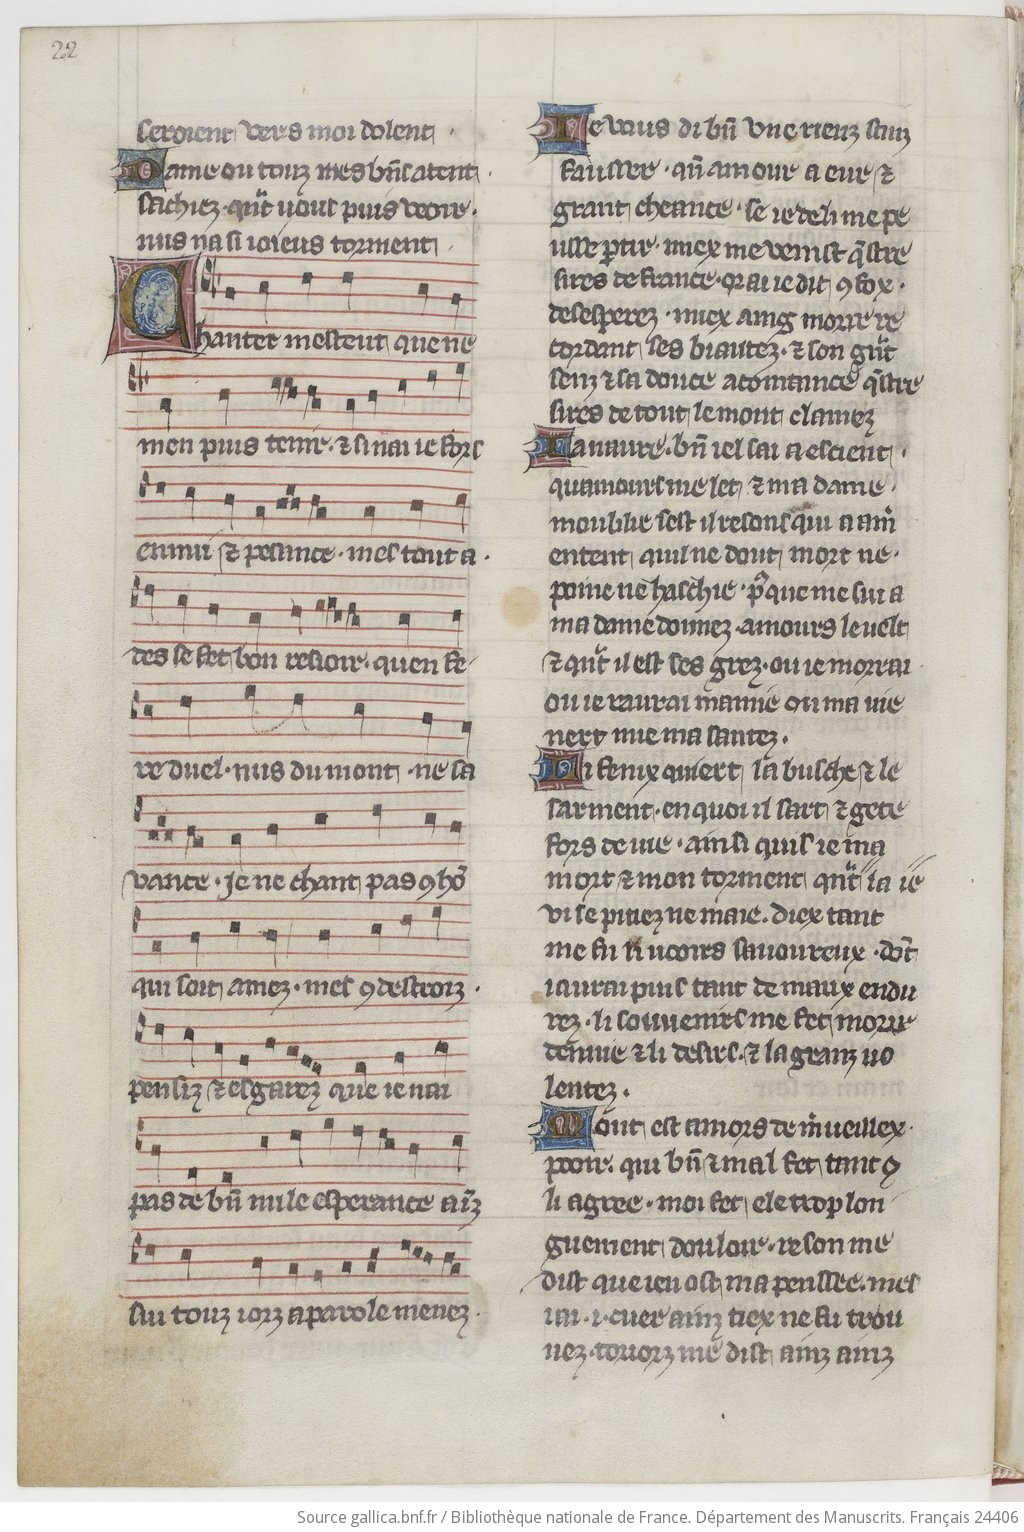 22
seroient vers moi dolent .
Dame ou touz mes bn̄s atent .
sachiez . qn̄t vous puis veoir .
nus na si ioieus torment .
Chanter mestuet que ne
men puis tenir . ⁊ si nai ie fors
ennui ⁊ pesance . mes tout a .
des se fet bon resioir . quen fe
re duel . nus du mont . ne sa
vance . Je ne chant pas ꝯ hō
qui soit amez . mes ꝯ destroiz .
pensiz ⁊ esgarez que ie nai
pas de bn̄ nule esperance ainz
sui touz iorz a parole menez .
Je vous di bn̄ vne rienz sanz
fausser . qn̄ amour a eur ⁊
grant cheance . se ie de li me pe
usse ꝑtir . miex me venist q̄stre
sires de france . or ai ie dit ꝯ fox .
desesperez . miex aing morir re
cordant ses biautez . ⁊ son gn̄t
senz ⁊ sa douce acointance q̄stre
sires de tout le mont clamez
Ia naure . bn̄ iel sai a escient .
quamours me let ⁊ ma dame .
moublie sest il resons qui a am̄
entent quil ne dout mort ne .
poine ne haschie . p̄s que me sui a
ma dame donnez . amours le velt
⁊ qn̄t il est ses grez . ou ie morrai .
ou ie raurai mamie ou ma vie
nert mie ma santez .
Li fenix quiert la busche ⁊ le
sarment . en quoi il sart ⁊ gete
fors de vie . ainsi quis ie ma
mort ⁊ mon torment qn̄t la ie
vi se pitiez ne maie . diex tant
me fu li ueoirs savoureux . dōt
iaurai puis tant de maux endu
rez . li souuenirs me fet morir
denuie ⁊ li desirs . ⁊ la granz vo
lentez .
Mout est amors de m̄ueillex .
pooir . qui bn̄ ⁊ mal fet tant ꝯ
li agree . moi fet ele trop lon
guement douloir . reson me
dist que ien ost ma penssee . mes
iai .i. cuer ainz tiex ne fu trou
uez . touorz me dist ainz ainz
Source gallica.bnf.fr / Bibliothèque nationale de France. Département des Manuscrits. Français 24406